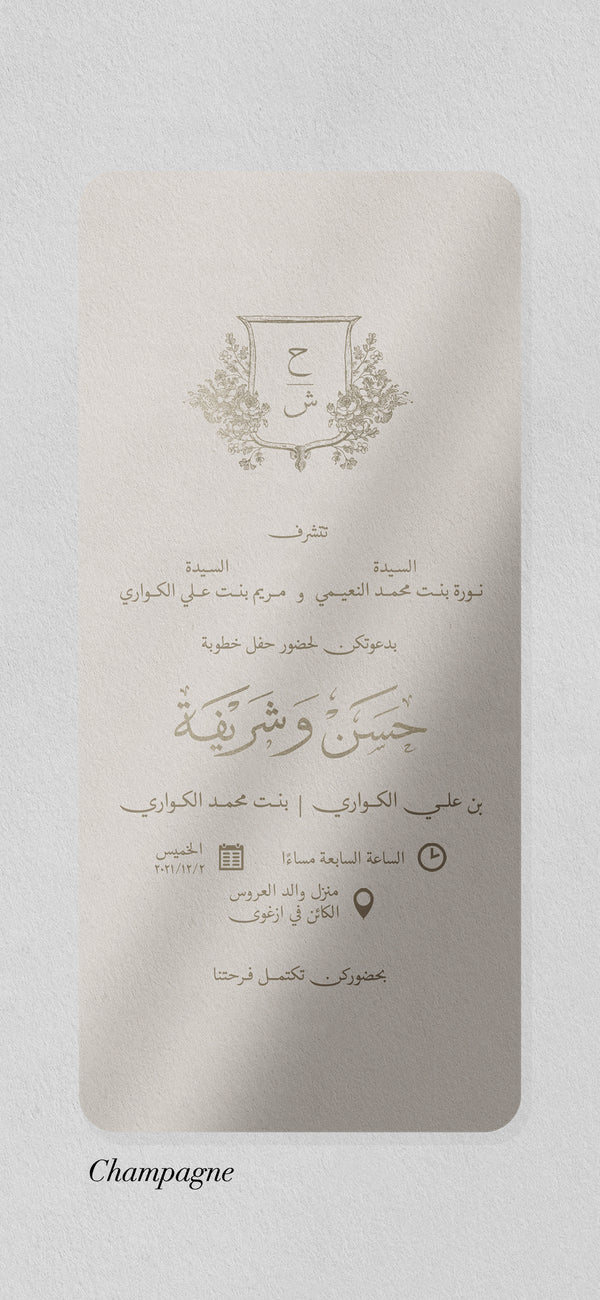 ح
ش
تتشرف
السيدة السيدة
نورة بنت محمد النعيمي و مريم بنت علي الكواري
بدعوتكن لحضور حفل خطوبة
حسن وشريفة
بن علي الكواري | بنت محمد الكواري
الساعة السابعة مساءًا الخميس
٢٠٢١/١٢/٢
منزل والد العروس
الكائن في ازغوى
بحضوركن تكتمل فرحتنا
Champagne